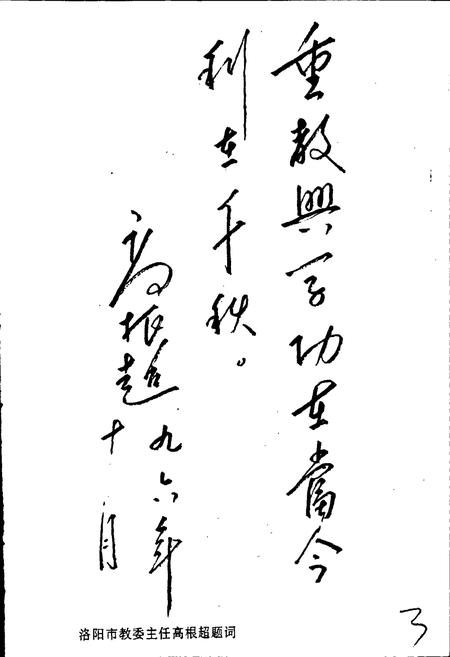 重教興学功在當今
利在千秋。
高根超 九六年
十月
洛阳市教委主任高根超题词
3